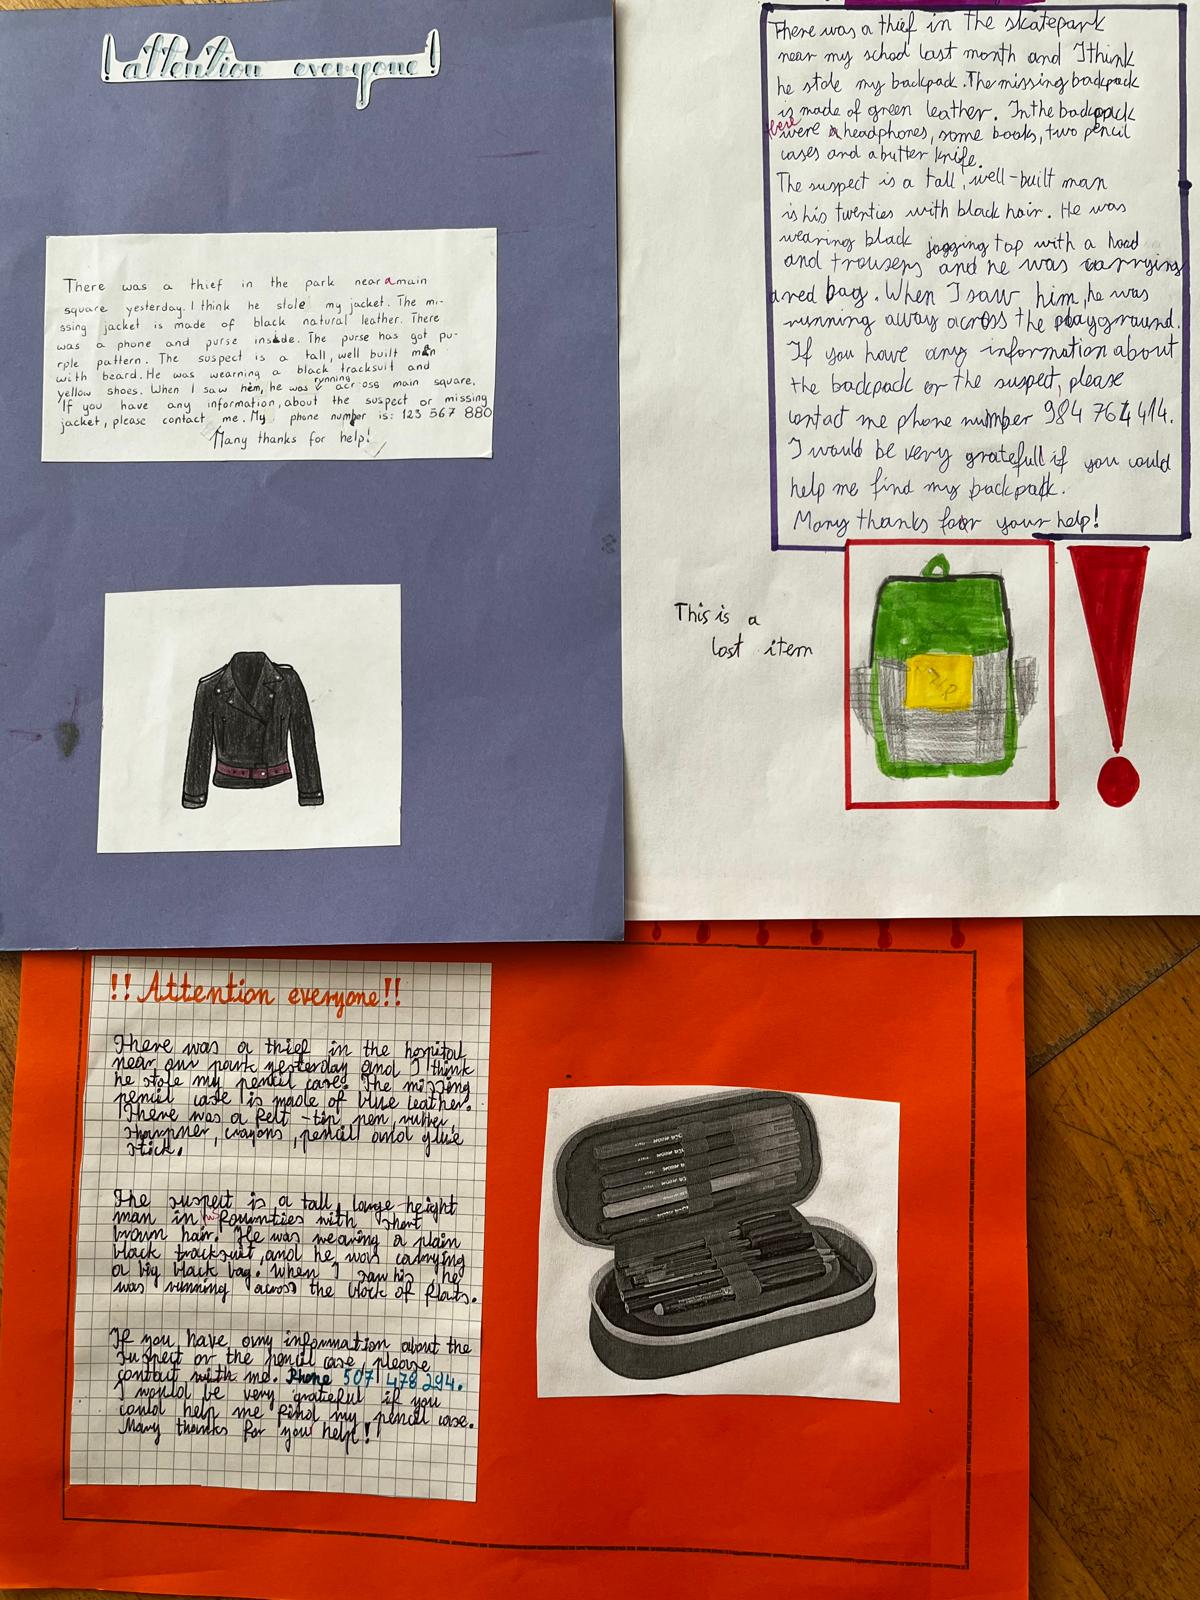 ! attention everyone !
There was a thief in the park near a main
square yesterday. I think he stole my jacket. The mi-
ssing jacket is made of black natural leather. There
was a phone and purse inside. The purse has got pu-
rple pattern. The suspect is a tall, well built man
with beard. He was wearning a black tracksuit and
yellow shoes. When I saw hem, he was running across main square.
If you have any information, about the suspect or missing
jacket, please contact me. My phone number is: 123 567 880
Many thanks for help!
There was a thief in the skatepark
near my school last month and I think
he stole my backpack. The missing backpack
is made of green leather. In the backpack
there were a headphones, some books, two pencil
cases and a butter knife.
The suspect is a tall, well-built man
is his twenties with black hair. He was
wearing black jogging top with a hood
and trousers and he was carrying
a red bag. When I saw him, he was
running away across the playground.
If you have any information about
the backpack or the suspect, please
contact me phone number 984 764 414.
I would be very gratefull if you could
help me find my backpack.
Many thanks for your help!
This is a
lost item
!
!! Attention everyone!!
There was a thief in the hospital
near our park yesterday and I think
he stole my pencil case. The missing
pencil case is made of blue leather.
There was a felt-tip pen, rubber,
sharpner, crayons, pencil and glue
stick.
The suspect is a tall, large height
man in fourinties with short
brown hair. He was wearing a plain
black tracksuit, and he was carrying
a big black bag. When I saw his he
was running across the block of flats.
If you have any information about the
suspect or the pencil case please
contact with me. Phone 507 478 294.
I would be very grateful if you
could help me find my pencil case.
Many thanks for you help!